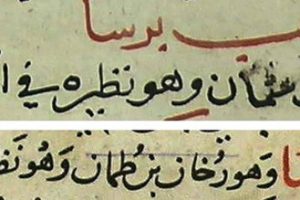 برسا
عثمان وهو نظيره في
وهو رخان بن طمان وهو